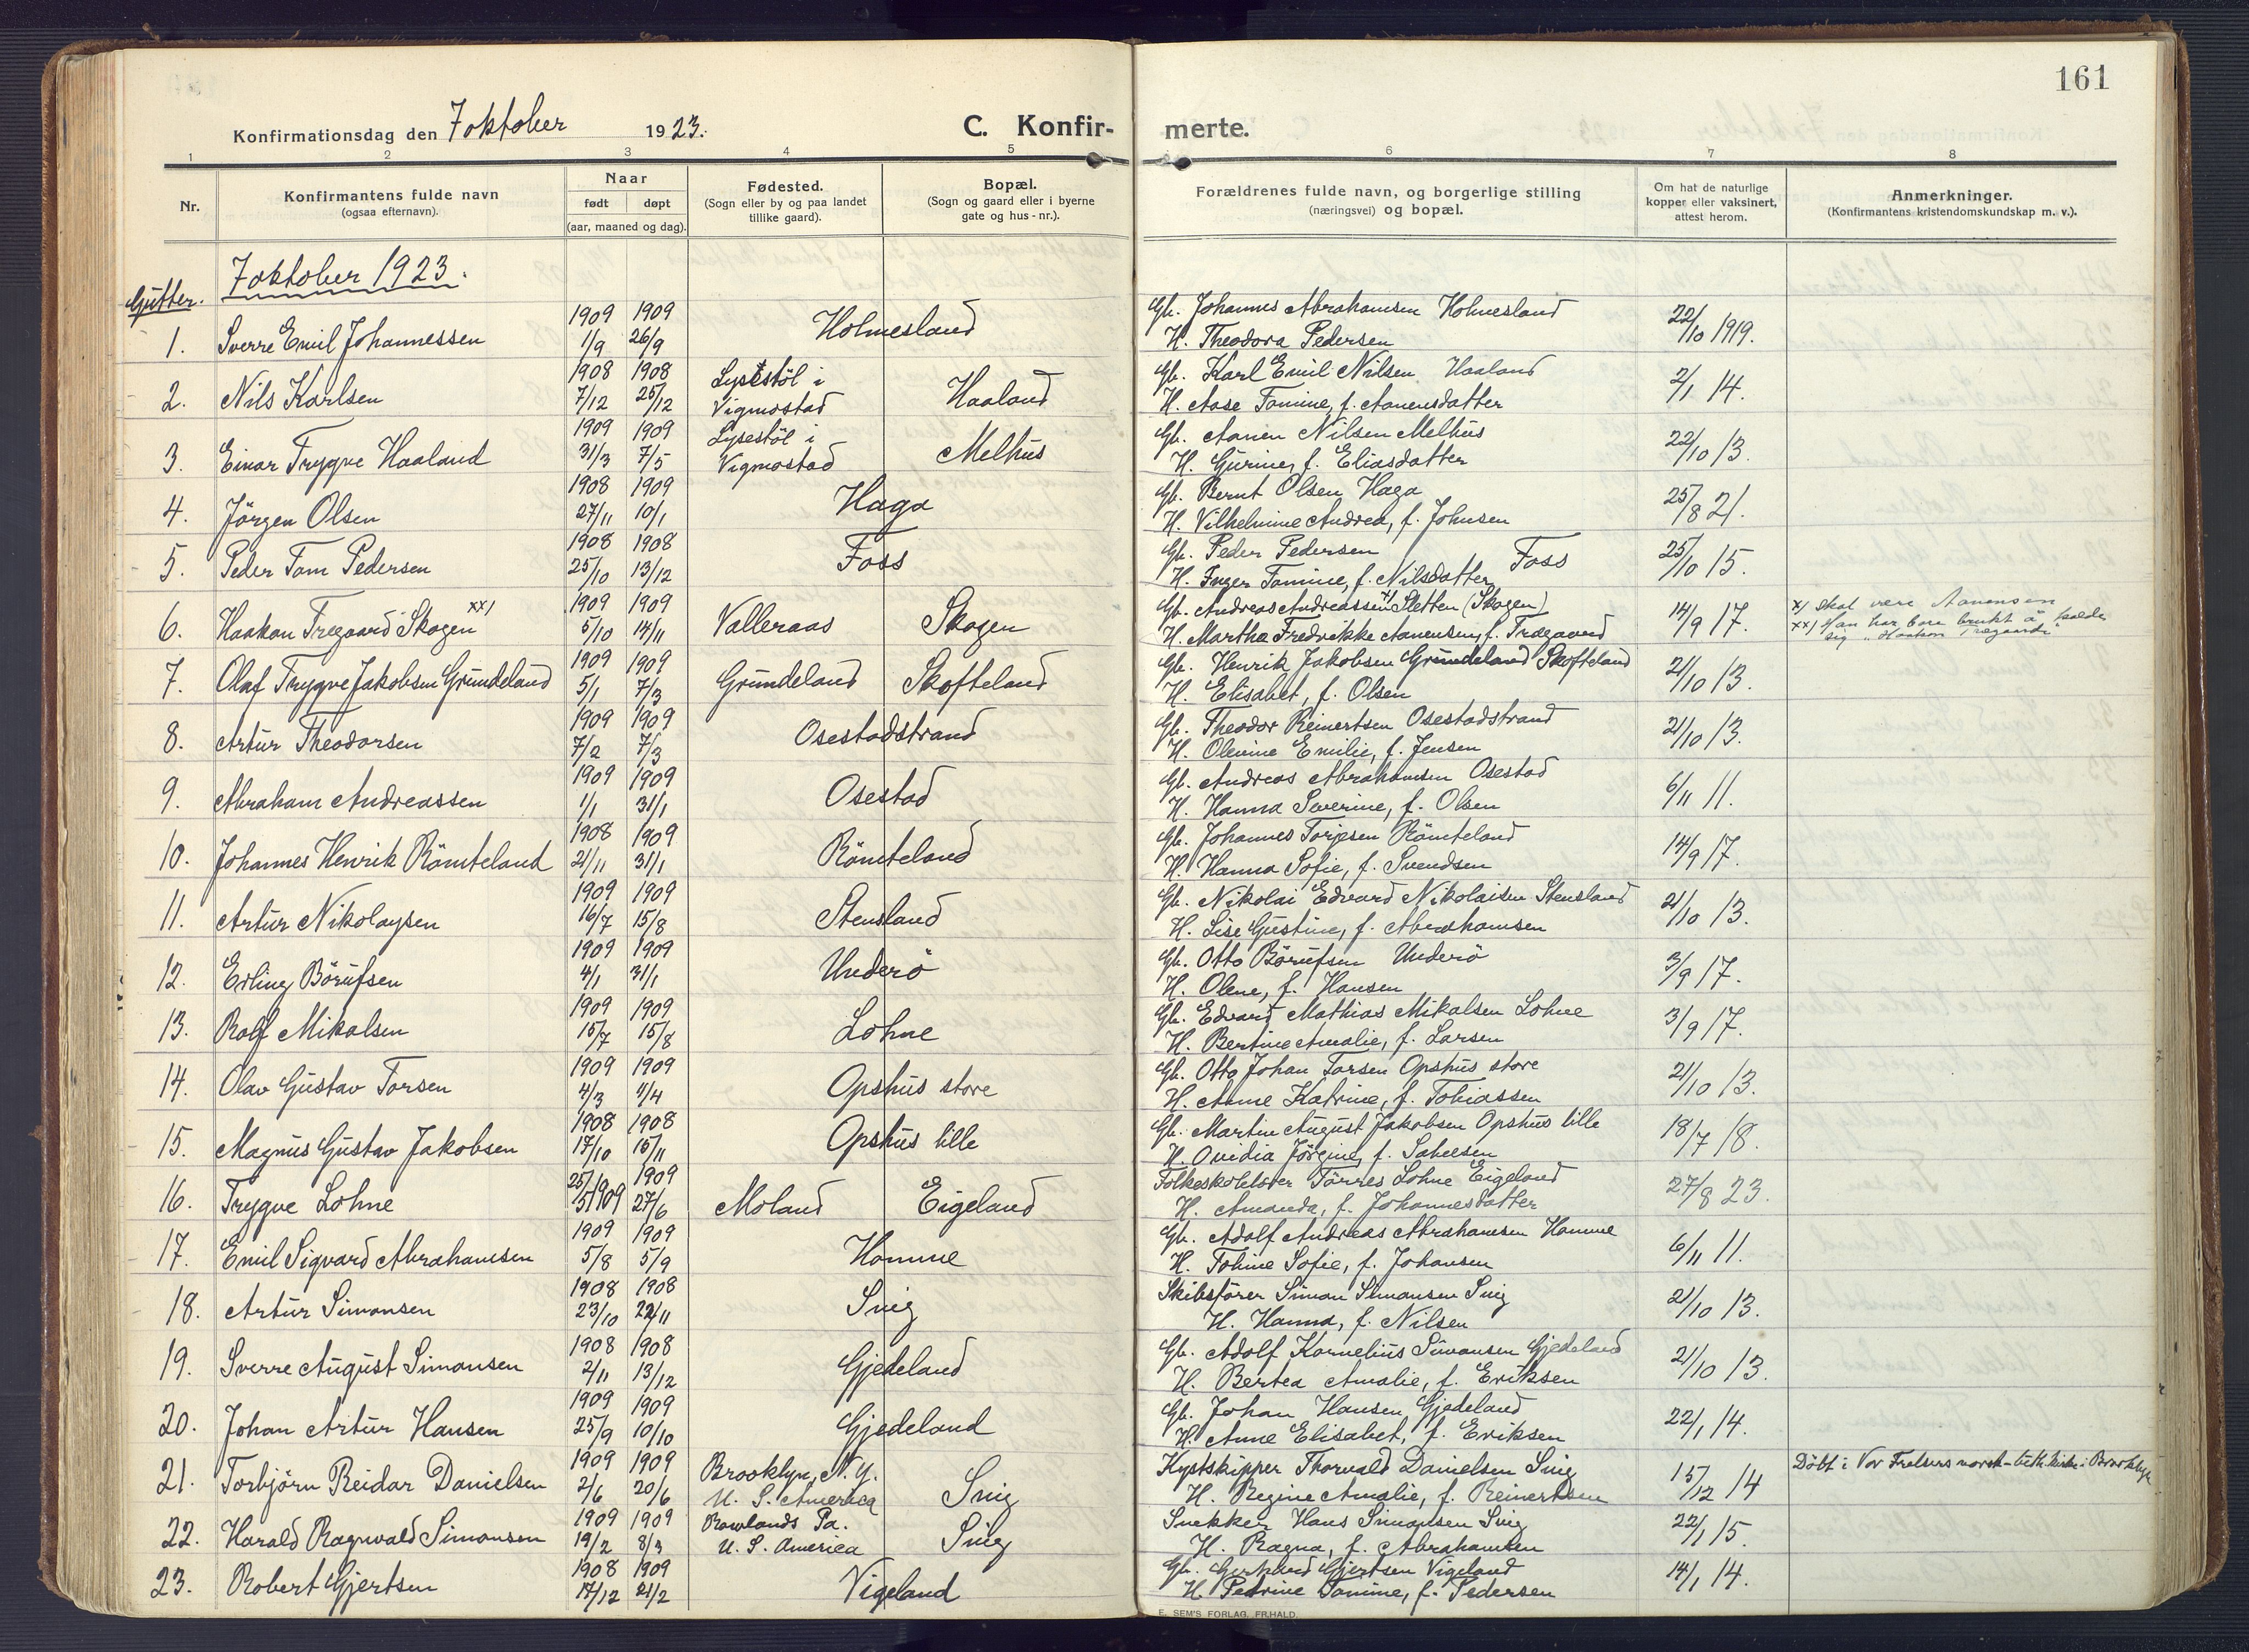 161
Konfirmationsdag den 7 oktober 1923.
C. Konfir-
merte.
1 2 3 4 5 6 7 8
Nr.
Konfirmantens fulde navn
(ogsaa efternavn).
Naar
født døpt
(aar, maaned og dag).
Fødested.
(Sogn eller by og paa landet
tillike gaard).
Bopæl.
(Sogn og gaard eller i byerne
gate og hus-nr.).
Forældrenes fulde navn, og borgerlige stilling
(næringsvei) og bopæl.
Om hat de naturlige
kopper eller vaksinert,
attest herom.
Anmerkninger.
(Konfirmantens kristendomskundskap m. v.).
Gutter.
7 oktober 1923.
1. Sverre Emil Johannessen 1909 1/9 1909 26/9 Holmesland
Gb. Johannes Abrahamsen Holmesland
H. Theodora Pedersen
22/10 1919.
2. Nils Karlsen 1908 7/12 1908 25/12 Lysestöl i Vigmostad Haaland
Gb. Karl Emil Nilsen Haaland
H. Aase Tomine, f. Aanensdatter
2/1 14.
3. Einar Trygve Haaland 1909 31/3 1909 7/5 Lysestöl i Vigmostad Melhus
Gb. Aanen Nilsen Melhus
H. Gurine, f. Eliasdatter
22/10 13.
4. Jörgen Olsen 1908 27/11 1909 10/1 Haga
Gb. Bernt Olsen Haga
H. Vilhelmine Andrea, f. Johnsen
25/8 21.
5. Peder Tom Pedersen 1908 25/10 1908 13/12 Foss
Gb. Peder Pedersen Foss
H. Inger Tomine, f. Nilsdatter
25/10 15.
6. Haakon Tregaard Skogen xx) 1909 5/10 1909 14/11 Valleraas Skogen
Gb. Andreas Andreassen x) Sletten (Skogen)
H. Martha Fredrikke Aanensen, f. Trægaard
14/9 17.
x) Skal være Aanensen
xx) Han har bare brukt å kalde
sig "Haakon Trægaard"
7. Olaf Trygve Jakobsen Grundeland 1909 5/1 1909 7/3 Grundeland Skofteland
Gb. Henrik Jakobsen Grundeland Skofteland
H. Elisabet, f. Olsen
21/10 13.
8. Artur Theodorsen 1909 7/2 1909 7/3 Osestadstrand
Gb. Theodor Reinertsen Osestadstrand
H. Olevine Emilie, f. Jensen
21/10 13.
9. Abraham Andreassen 1909 1/1 1909 31/1 Osestad
Gb. Andreas Abrahamsen Osestad
H. Hanna Severine, f. Olsen
6/11 11.
10. Johannes Henrik Römteland 1908 21/11 1909 31/1 Römteland
Gb. Johannes Torjesen Römteland
H. Hanna Sofie, f. Svendsen
14/9 17.
11. Artur Nikolaysen 1909 16/7 1909 15/8 Stensland
Gb. Nikolai Edvard Nikolaisen Stensland
H. Lise Gustine, f. Abrahamsen
21/10 13.
12. Erling Börufsen 1909 4/1 1909 31/1 Underö
Gb. Otto Börufsen Underö
H. Olene, f. Hansen
3/9 17.
13. Rolf Mikalsen 1909 15/7 1909 15/8 Lohne
Gb. Edvard Mathias Mikalsen Lohne
H. Bertine Amalie, f. Larsen
3/9 17.
14. Olav Gustav Torsen 1909 4/3 1909 11/4 Opshus store
Gb. Otto Johan Torsen Opshus store
H. Anne Katrine, f. Tobiassen
21/10 13.
15. Magnus Gustav Jakobsen 1908 17/10 1908 15/11 Opshus lille
Gb. Martin August Jakobsen Opshus lille
H. Ovidia Jörgine, f. Salvesen
18/7 18.
16. Trygve Lohne 25/5 1909 1909 27/6 Moland Eigeland
Folkeskolelærer Tarres Lohne Eigeland
H. Amanda, f. Johannesdatter
27/8 23.
17. Emil Sigvard Abrahamsen 1909 5/8 1909 5/9 Homme
Gb. Adolf Andreas Abrahamsen Homme
H. Tobine Sofie, f. Johansen
6/11 11.
18. Artur Simonsen 1908 23/10 1908 22/11 Snig
Skibsförer Simon Simonsen Snig
H. Hanna, f. Nilsen
21/10 13.
19. Sverre August Simonsen 1908 2/11 1908 13/12 Gjedeland
Gb. Adolf Kornelius Simonsen Gjedeland
H. Bertea Amalie, f. Eriksen
21/10 13.
20. Johan Artur Hansen 1909 25/9 1909 10/10 Gjedeland
Gb. Johan Hansen Gjedeland
H. Anne Elisabet, f. Eriksen
22/1 14.
21. Torbjörn Reidar Danielsen 1909 2/6 1909 20/6 Brooklyn, N.Y. U. S. America Snig
Kystskipper Thorvald Danielsen Snig
H. Regine Amalie, f. Reinertsen
15/12 14
Döbt i Vor Frelsers norsk-luth. kirke i Brooklyn
22. Harald Ragnvald Simonsen 1909 19/2 1909 8/3 Rowlands Pa. U. S. America Snig
Snekker Hans Simonsen Snig
H. Ragna, f. Abrahamsen
22/1 15.
23. Robert Gjertsen 1908 17/12 1909 21/2 Vigeland
Gb. Gerhard Gjertsen Vigeland
H. Petrine Tomine, f. Pedersen
14/1 14.
E. SEM'S FORLAG, FR.HALD.